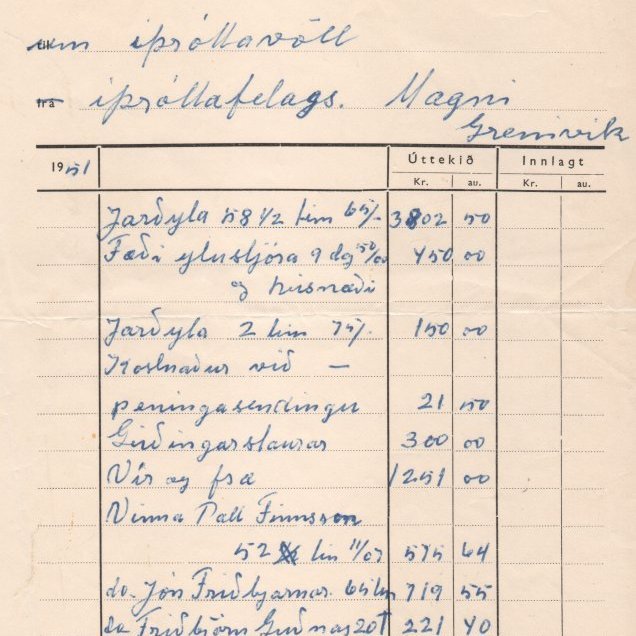 um íþróttavöll
frá íþróttafelags. Magni
Grenivik
1951 Úttekið Innlagt
Kr. au. Kr. au.
Jarðyta 58 1/2 tim 65/- 3802 50
Fæði ytustjóra 9 dg 50/00 450 00
og húsnæði
Jarðyta 2 tim 75/- 150 00
Kostnaður við —
peningasendingu 21 50
Girðingarstaurar 300 00
Vír og fræ 1251 00
Vinna Pall Finnsson
52 tim 11/07 575 64
do. Jón Friðbjarnar. 65 tim 719 55
do Friðbjörn Guðnas 20 t 221 40